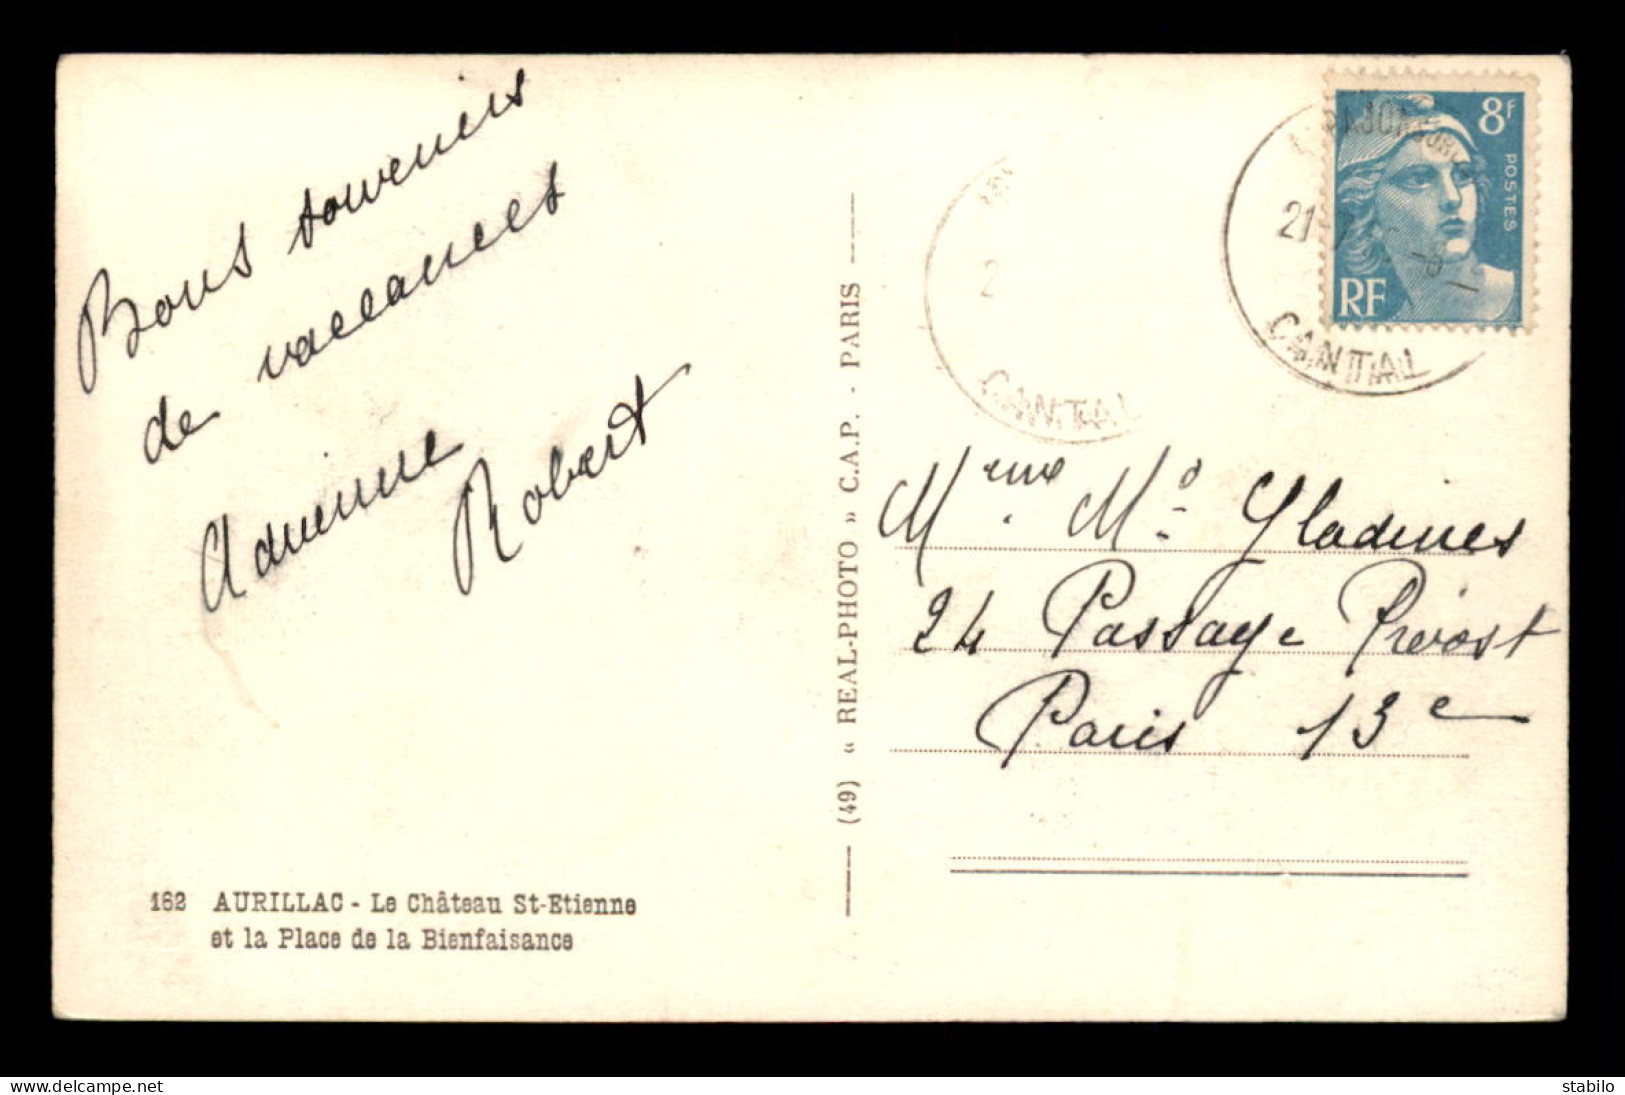 Bons souvenirs
de vaccances
Adrienne
Robert
162 AURILLAC - Le Château St-Etienne
et la Place de la Bienfaisance
(49) « REAL-PHOTO » C.A.P. - PARIS
8F
POSTES
RF
21
CANTAL
2
CANTAL
Mme Md Gladines
24 Passage Prévost
Paris 13e
Mehr Bilder auf www.delcampe.net
stabilo